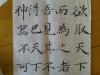 欲取天下
而為之者
吾見其不
得已天下
神器不可